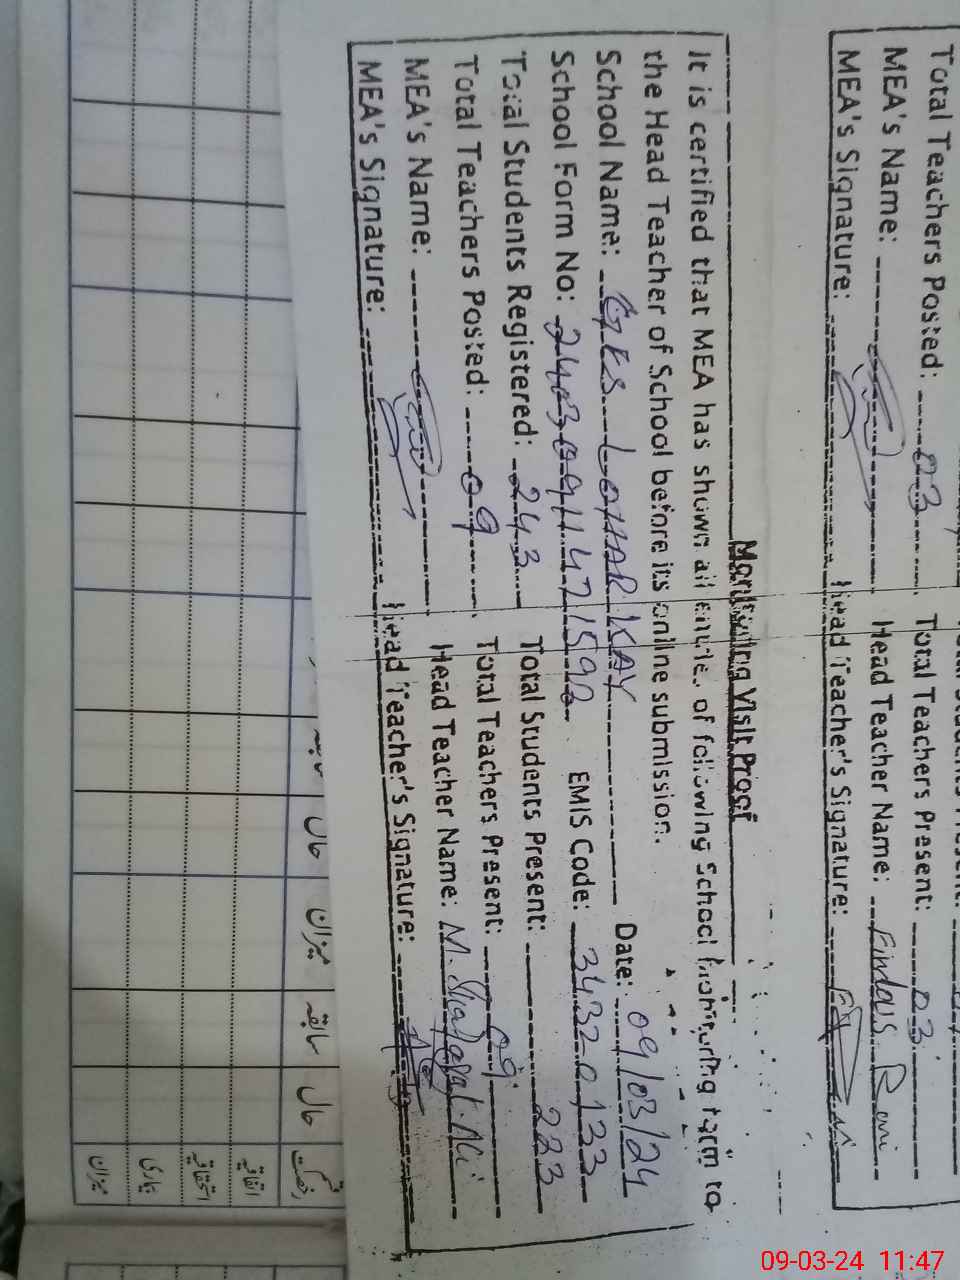 Total Teachers Posted: 03 Total Teachers Present: 03
MEA's Name: Head Teacher Name: Firdous Rani
MEA's Signature: Head Teacher's Signature:
Monitoring Visit Proof
It is certified that MEA has shown all of following School to
the Head Teacher of School before its online submission.
School Name: GES LOHAR KAY Date: 09/03/24
School Form No: EMIS Code: 34320133
Total Students Registered: 243 Total Students Present: 233
Total Teachers Posted: 09 Total Teachers Present: 09
MEA's Name: Head Teacher Name: M. Ali
MEA's Signature: Head Teacher's Signature:
حال میزان سابقہ حال قسم رخصت
اتفاقیہ
استحقاقیہ
بیماری
میزان
09-03-24 11:47